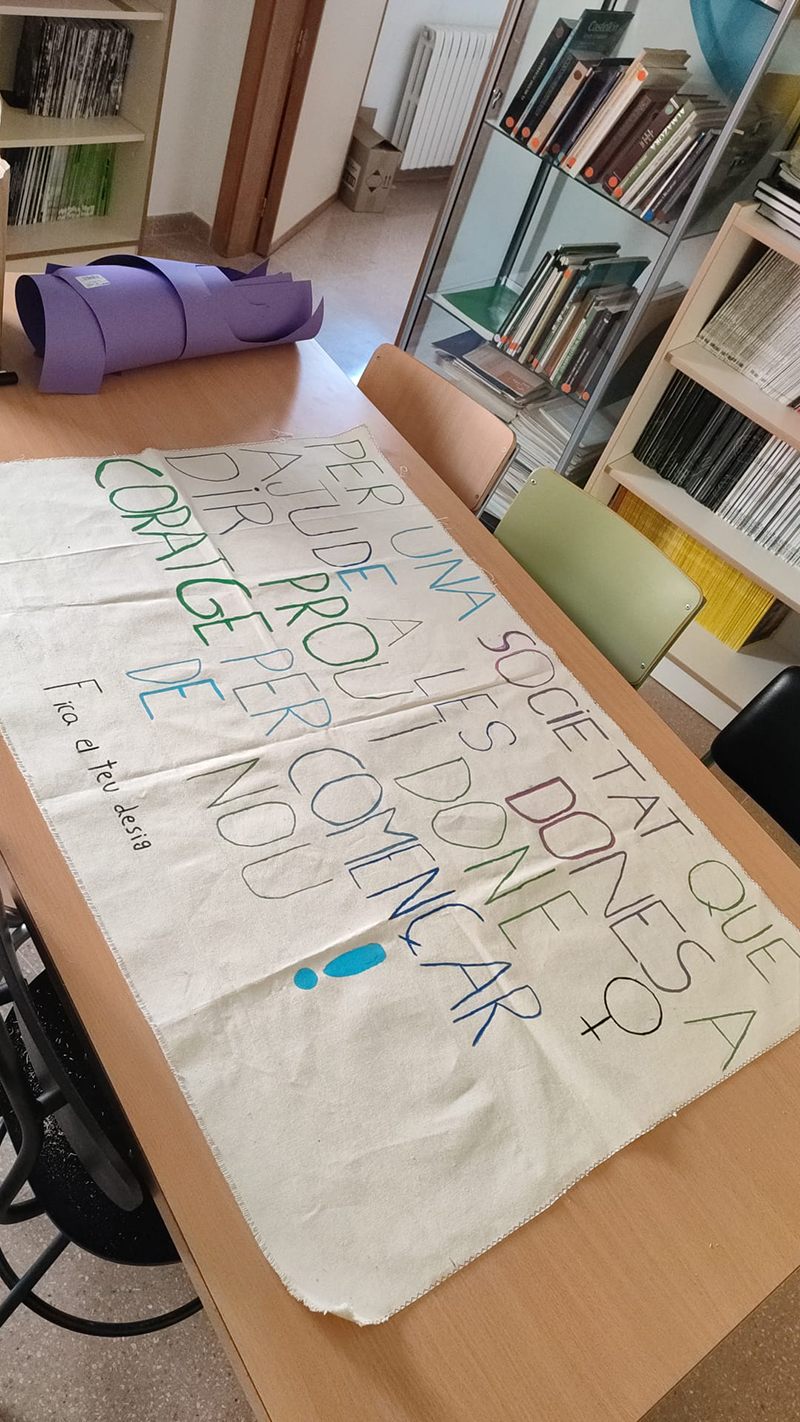 PER UNA SOCIETAT QUE
AJUDE A LES DONES A
DIR PROU I DONE ♀
CORATGE PER COMENÇAR
DE NOU !
Fica el teu desig